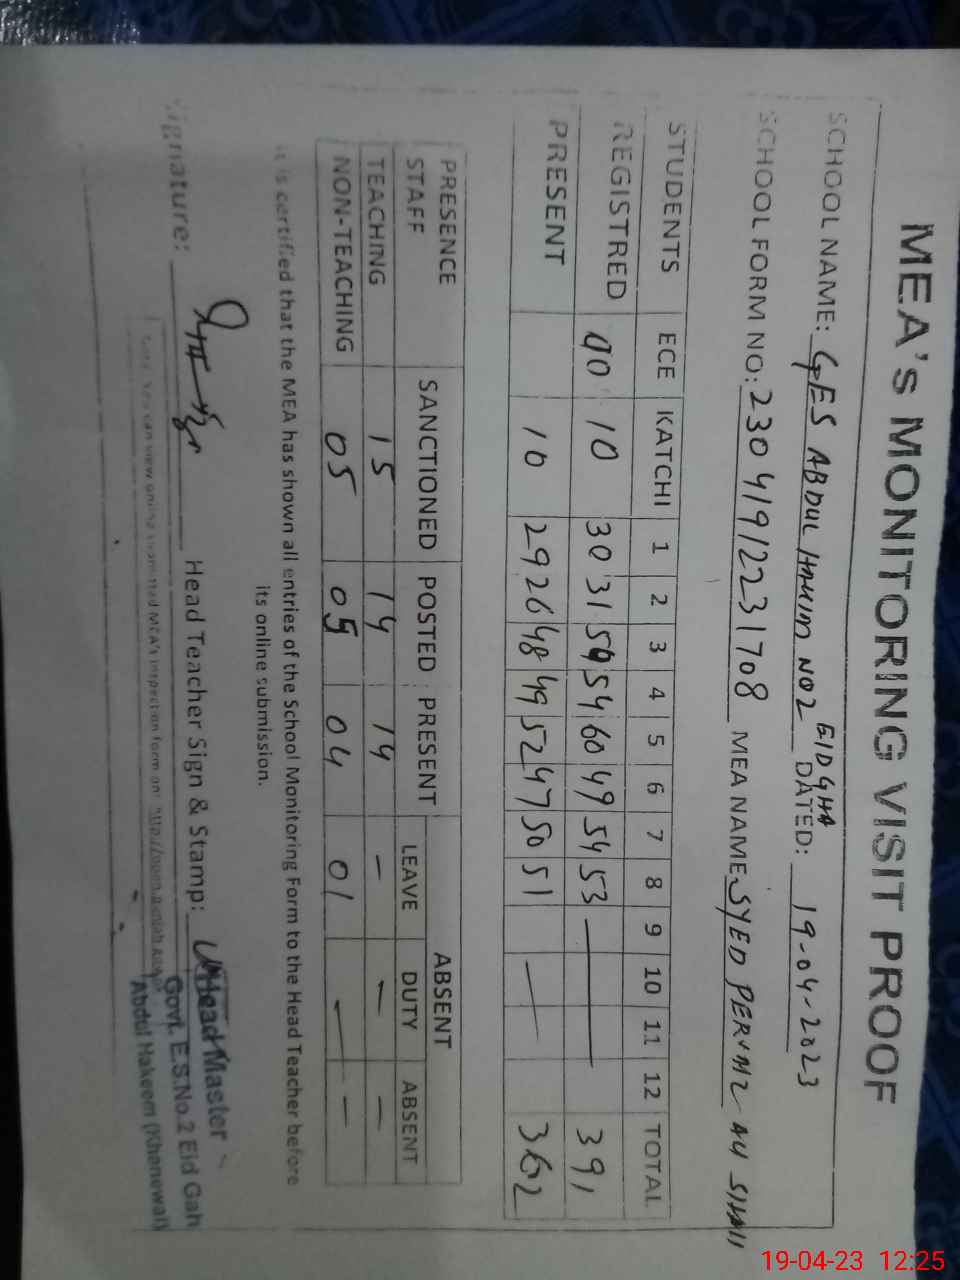 MEA'S MONITORING VISIT PROOF
SCHOOL NAME: GES ABDUL HAKIM NO2 EIDGHA DATED: 19-04-2023
SCHOOL FORM NO: 23041912231708 MEA NAME SYED
STUDENTS ECE KATCHI 1 2 3 4 5 6 7 8 9 10 11 12 TOTAL
REGISTRED 00 10 30 31 54 60 49 54 53 — 391
PRESENT 10 29 26 48 49 52 47 50 51 — 362
PRESENCE STAFF SANCTIONED POSTED PRESENT ABSENT
LEAVE DUTY ABSENT
TEACHING 15 14 14 — — —
NON-TEACHING 05 05 04 01 — —
It is certified that the MEA has shown all entries of the School Monitoring Form to the Head Teacher before
its online submission.
Signature: Head Teacher Sign & Stamp:
Head Master
Govt. E.S.No.2 Eid Gah
Abdul Hakeem (Khanewal)
Note: You can view online submitted MEA's inspection form on:
19-04-23 12:25